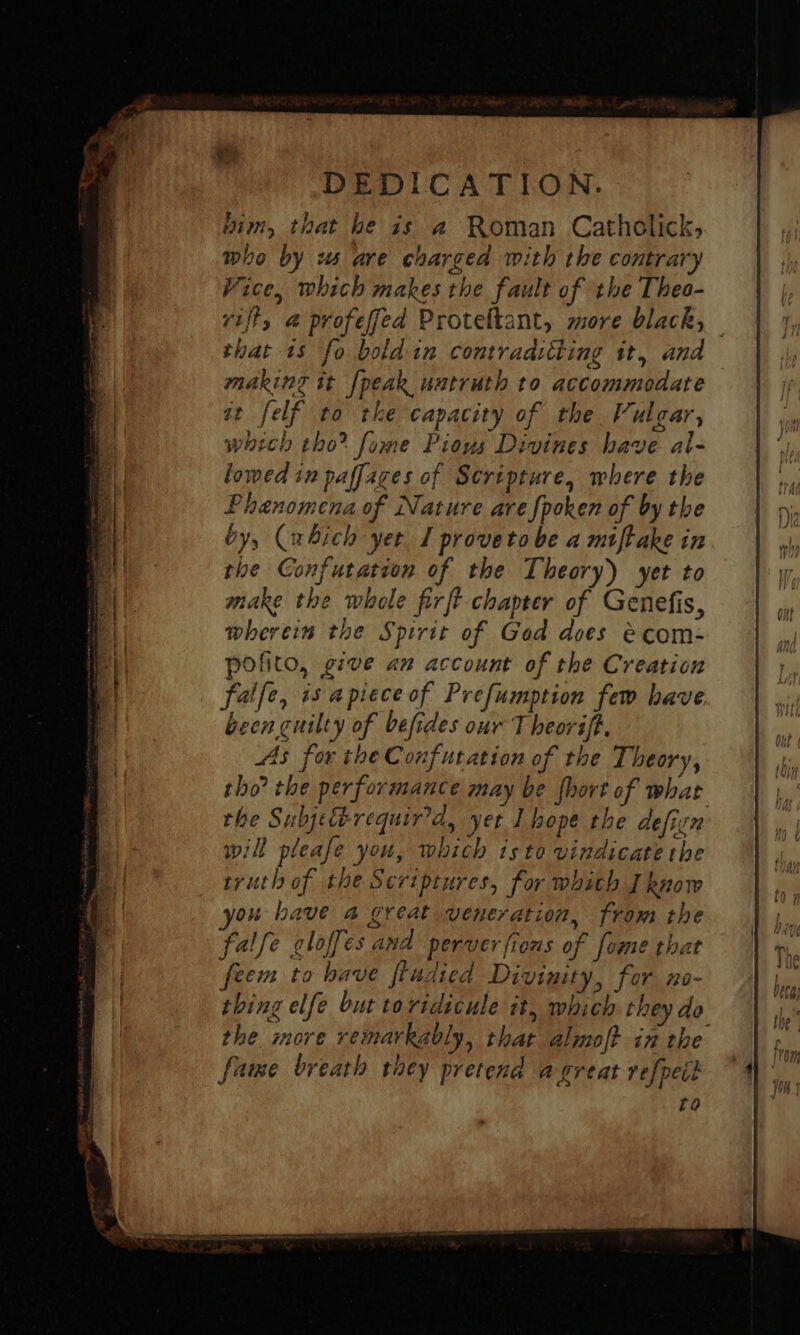 DEDICATION.
him, that he is a Roman Catholick,
who by us are charged with the contrary
Vice, which makes the fault of the Theo-
rift, a profeſſed Proteſtant, more black,
that is ſo bold in contradicting it, and
making it ſpeak untruth to accommodate
it ſelf to the capacity of the Vulgar,
which tho' ſome Pious Divines have al-
lowed in paſſages of Scripture, where the
Phænomena of Nature are ſpoken of by the
by, (which yet I prove to be a miſtake in
the Confutation of the Theory) yet to
make the whole firſt chapter of Geneſis,
wherein the Spirit of God does è com-
poſito, give an account of the Creation
falſe, is a piece of Preſumption few have
been guilty of beſides our Theoriſt.
As for the Confutation of the Theory,
tho' the performance may be ſhort of what
the Subject requir'd, yet I hope the deſign
will pleaſe you, which is to vindicate the
truth of the Scriptures, for which I know
you have a great veneration, from the
falſe gloſſes and perverſions of ſome that
ſeem to have ſtudied Divinity, for no-
thing elſe but to ridicule it, which they do
the more remarkably, that almoſt in the
ſame breath they pretend a great reſpect
to